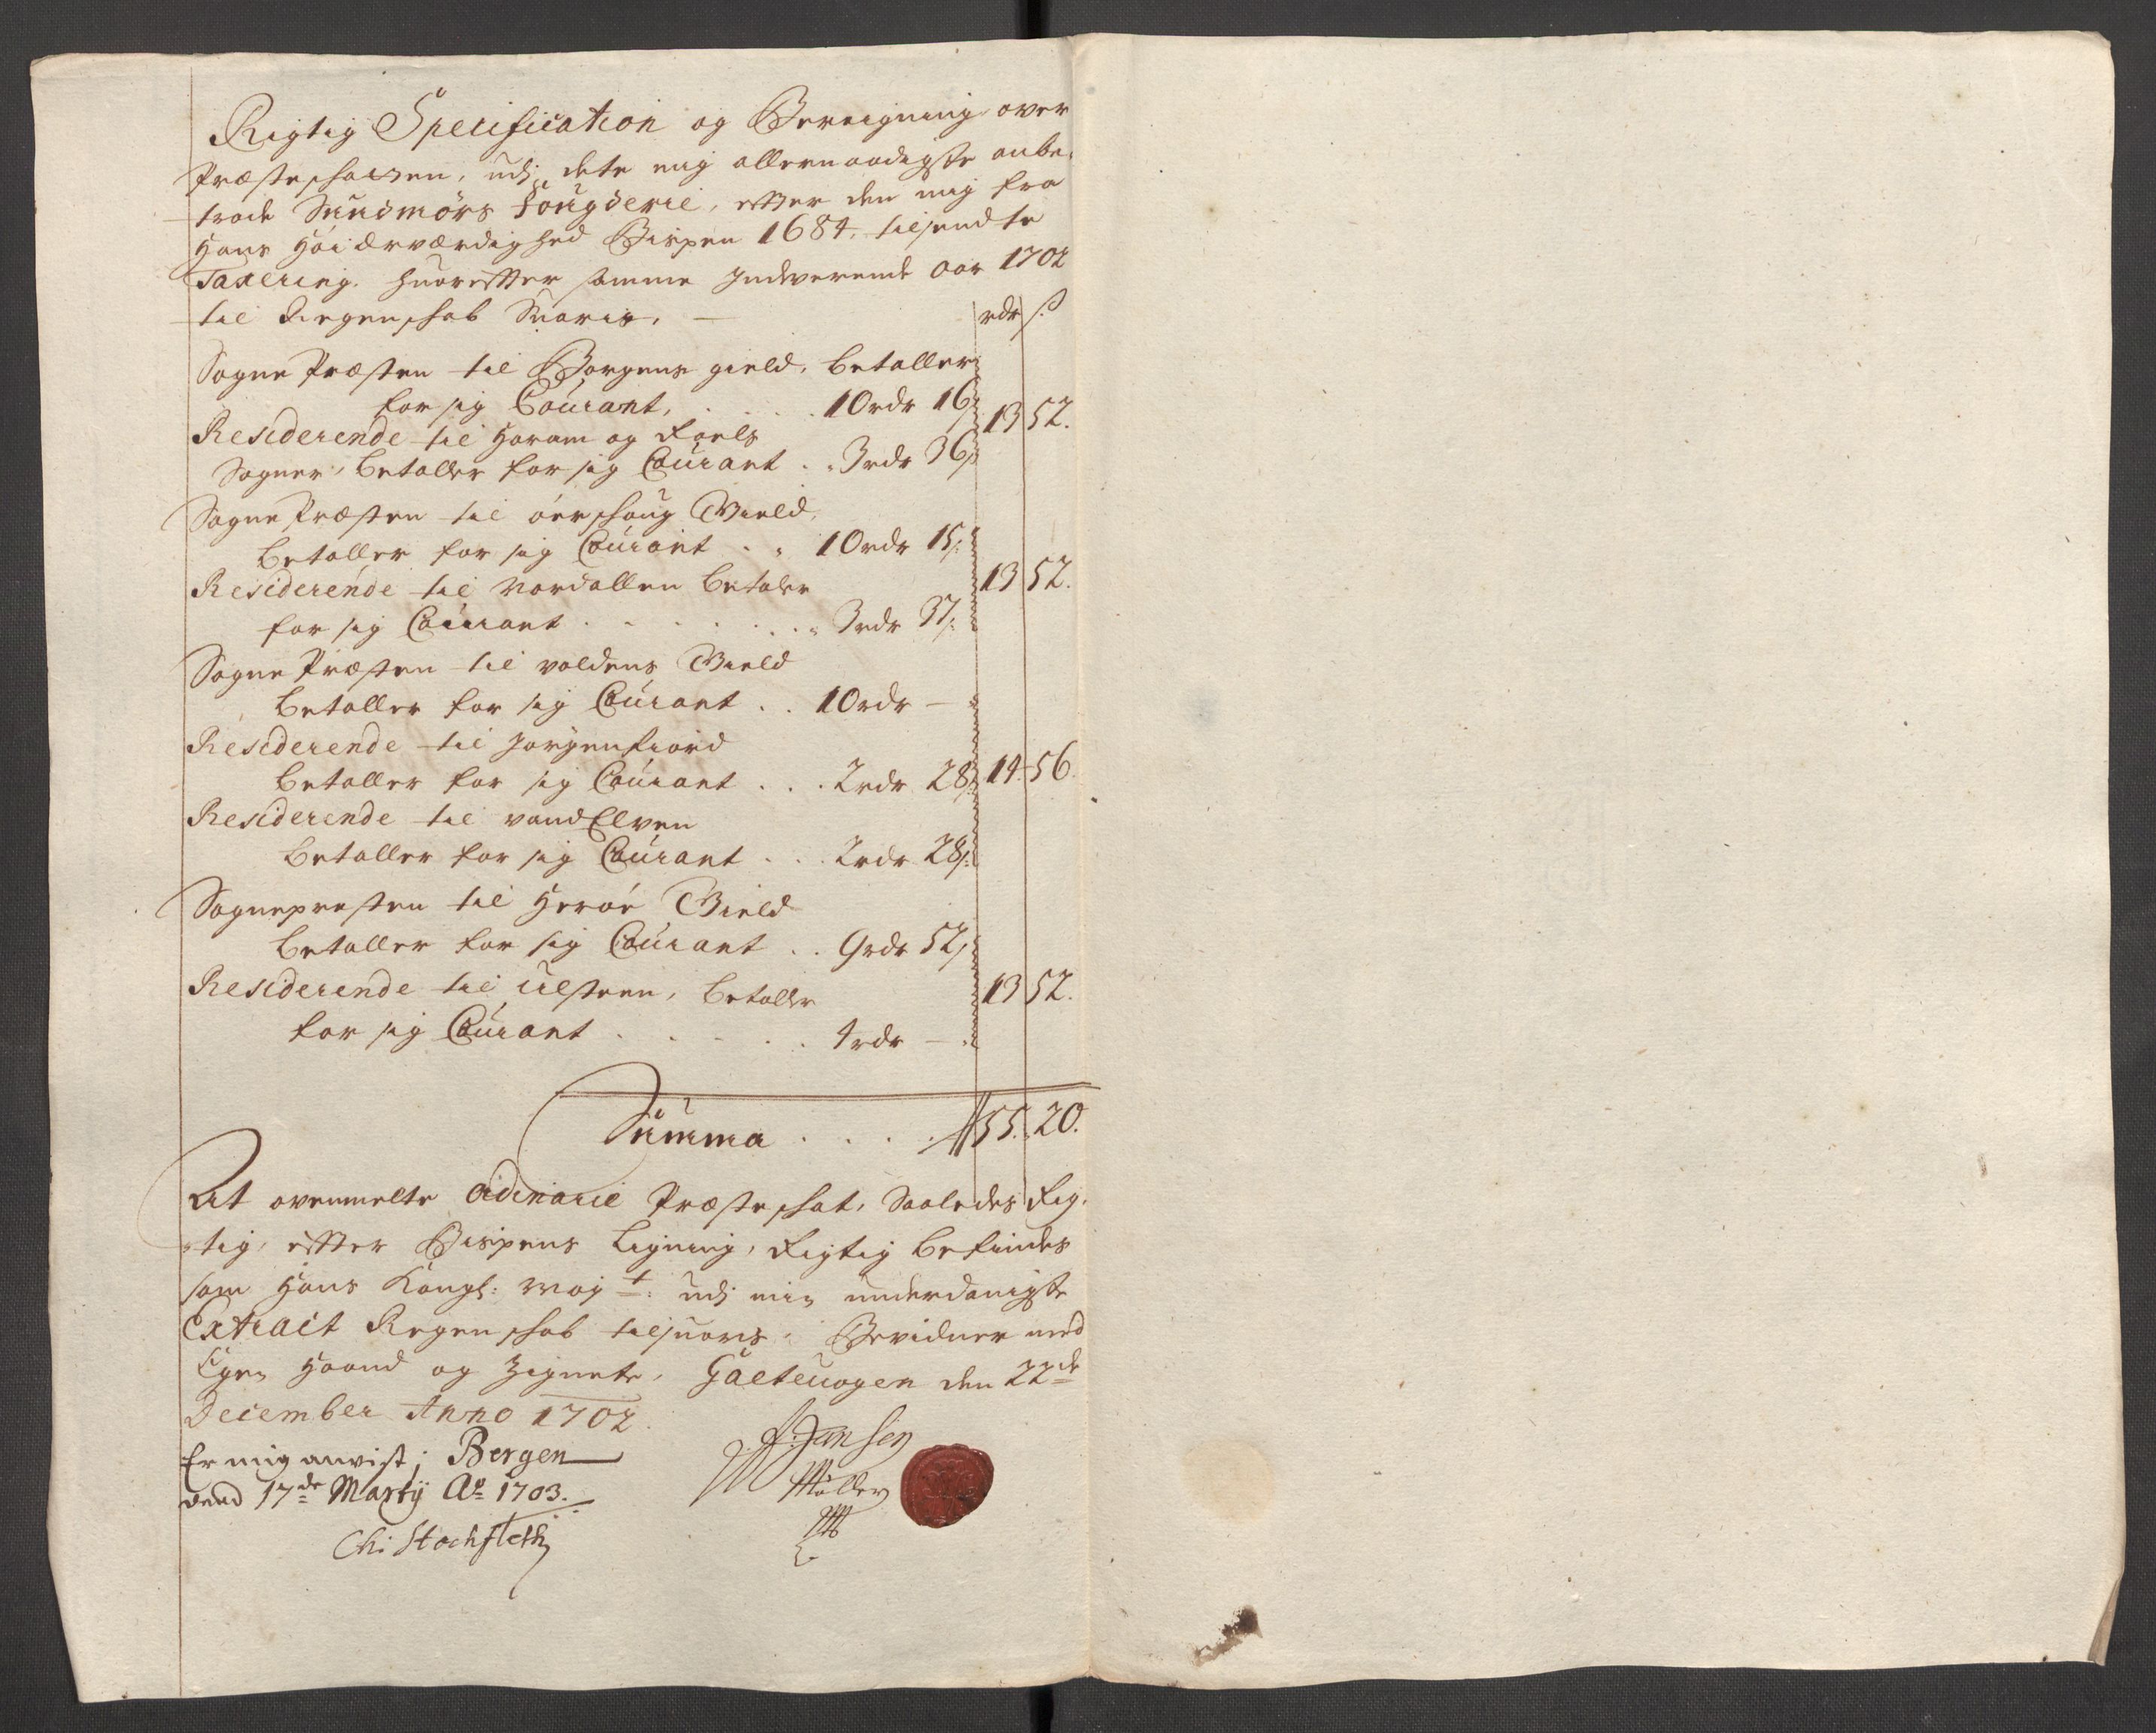 Rigtig Specification og Beregning over
Præsteschatten, udj dete mig allernaadigste anbe-
trode Sundmörs Fougderie, efter den mig fra
Hans Höiærværdighed Bispen 1684. tilsendte
Taxering. huorefter samme Indeverende Aar 1702
til Regenschab Suaris,
rdr ß
Sogne Præsten til Borgens gield, betaller
for sig Courant, . . . . 10 rdr 16
Residerende til Haram og Foels
Sogner, betaller for sig Courant . . 3 rdr 36 13 52.
Sogne Præsten til öerschoug Gield,
betaller for sig Courant . . 10 rdr 15
Residerende til Nordallen betaler
for sig Courant . . . . . . 3 rdr 37 13 52.
Sogne Præsten til voldens Gield
betaller for sig Courant . . 10 rdr —
Residerende til Jorgenfiord
betaller for sig Courant . . . 2 rdr 28 14 56.
Residerende til vandElven
betaller for sig Courant . . . 2 rdr 28
Sognepresten til Heröe Gield
betaller for sig Courant . . 9 rdr 52
Residerende til Ulsteen, betaller
for sig Courant . . . . . 4 rdr — 13 52.
Summa . . . . 55. 20.
At ovenmelte Ordinarie Præsteschat, Saaledes Rig-
tig, efter Bispens Ligning, Rigtig befindes
som Hans Kongl: Maj t: udj min underdanigste
Extract Regenschab tilsuaris, Bevidner med
Egen Haand og Zignete, Gaeteuogen den 22de
December Anno 1702.
Er mig anvist; Bergen
dend 17de Martij Ao 1703.
Jansen
Möller
Chr Stochfleth